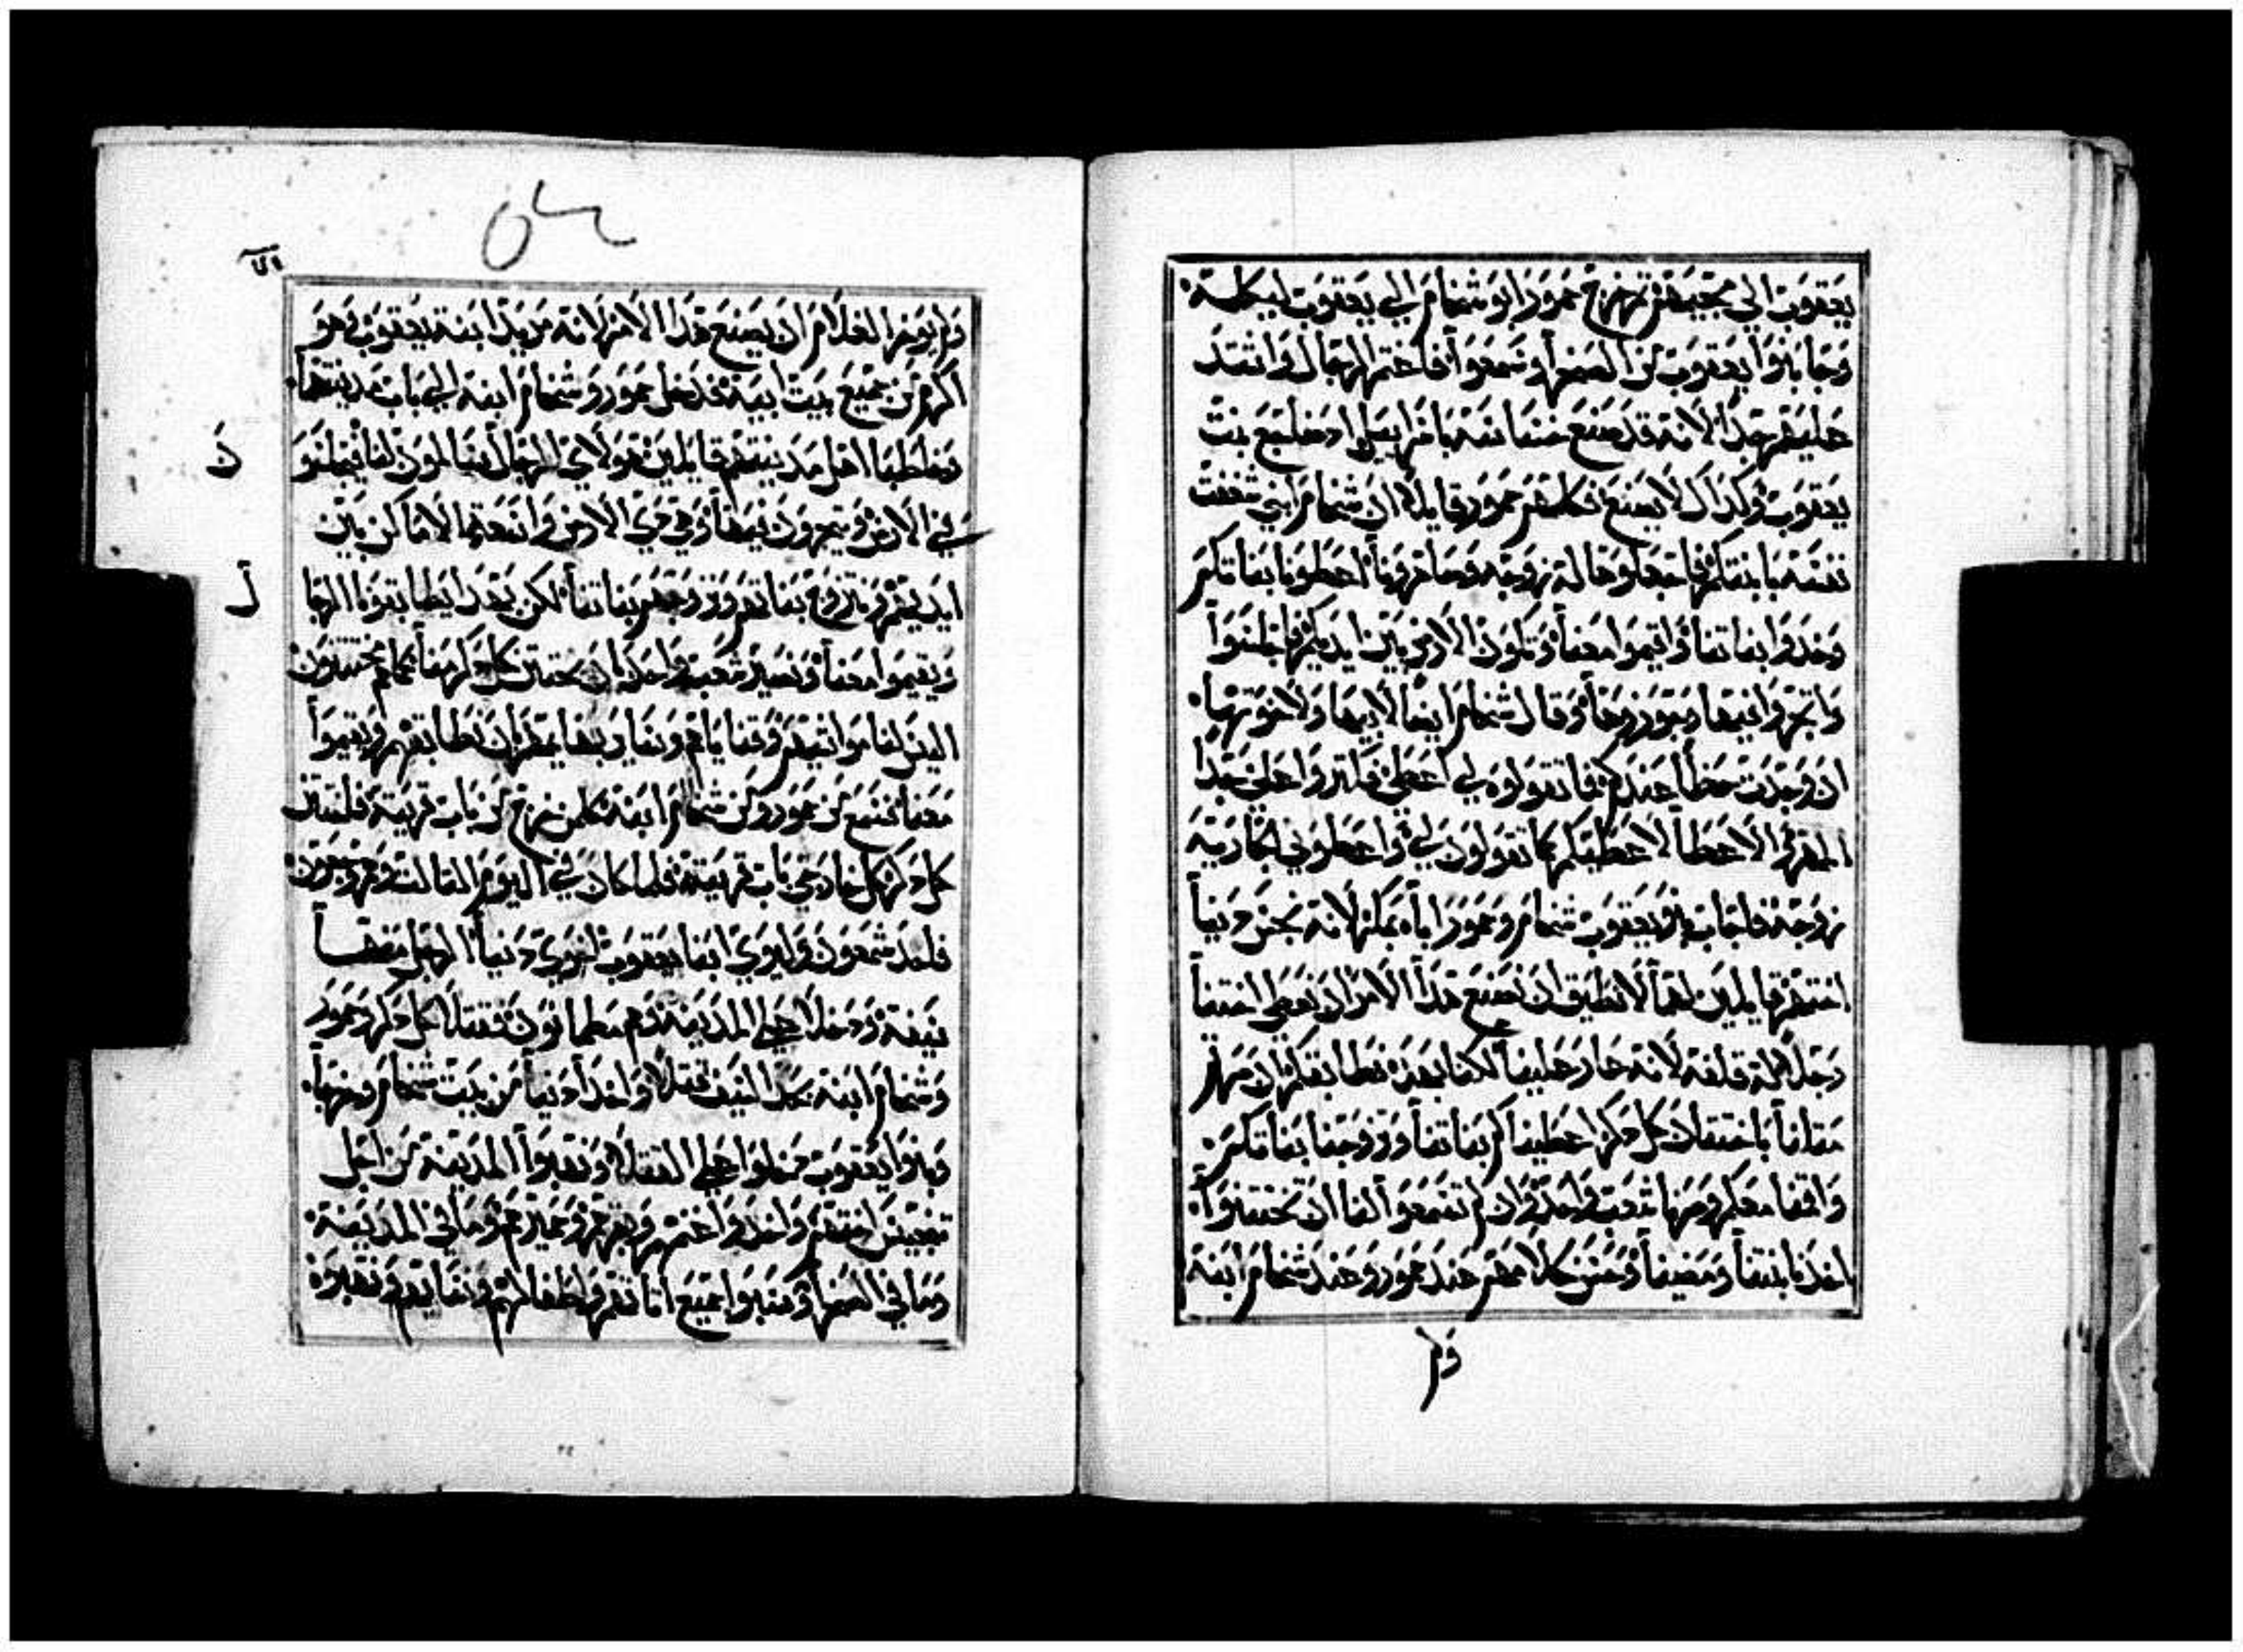 يعقوب الي مجيهم ثم خرج عمور ابو شخام الي يعقوب ليكلمه
وجا بنوا يعقوب من الصحرا وسمعوا فاغتم الرجال واشتد
عليهم جدا لانه قد صنع باسرايل اد ضاجع بنت
يعقوب وكدالك لا يصنع فكلمهم عمور قايلا ان شخام ابني شغفت
نفسه بابنتكم فاجعلوها له زوجه وصاهرونا اعطونا بناتكم
وخدوا بناتنا واقيموا معنا وتكون الارض بين ايديكم فاجلسوا
واتجروا فيها وحوزوها وقال شخام ايضا لابيها ولاخوتها
ان وجدت حظا عندكم فما تقولوه لي اعطي فاكتروا علي جدا
المهر والاعطا لاعطيكم كما تقولون لي واعطوني الجاريه
زوجه فاجاب بنو يعقوب شخام وعمور اباه بمكر لانه نجس دينا
اختهم قايلين لهما لا نطيق ان نصنع هدا الامر ان نعطي اختنا
رجلا له قلفه لانه عار علينا لكنا بهده نطابقكم ان صرتم
مثلنا باختتان كل دكر اعطيناكم بناتنا وتزوجنا بناتكم
واقمنا معكم وصرنا شعب واحد وان لم تسمعوا لنا ان تختتنوا
اخدنا ابنتنا ومضينا وحسن كلامهم عند عمور وعند شخام ابنه
ولم
٥٤
ولم يوخر الغلام ان يصنع هدا الامر لانه مريدا ابنة يعقوب وهو
اكرم من جميع بيت ابيه فدخل عمور وشخام ابنه الي باب مدينتهما
فخاطبا اهل مدينتهم قايلين هولاي الرجال مسالمون لنا فيجلسوا
في الارض ويتجرون فيها وهي دي الارض واسعة الاماكن بين
ايديهم ونتزوج بناتهم ونزوجهم بناتنا لكن بهدا يطابقونا الرجال
ويقيموا معنا ونصير شعب واحد بان يختتن كل دكر منا كما هم مختتنون
اليس لنا مواشيهم وقناياهم وبهايمهم بان نطابقهم ويقيموا
معنا فسمع من عمور ومن شخام ابنه كلمن خرج من باب قريته فاختتن
كل دكر كل خارجي باب قريته فلما كان في اليوم التالت وهم وجعون
فاخد شمعون وليوي ابنا يعقوب اخوي دينا الرجل منهما
سيفه ودخلا علي المدينه وهم مطمانون فقتلا كل دكر وعمور
وشخام ابنه بحد السيف قتلا واخدا دينا من بيت شخام وخرجا
وبنوا يعقوب دخلوا علي القتلا ونهبوا المدينه من اجل
تنجيس اختهم واخدوا اغنمهم وبقرهم وحميرهم وما في المدينه
وما في الصحرا وسبوا جميع اثاثهم واطفالهم ونسايهم ونهبوه